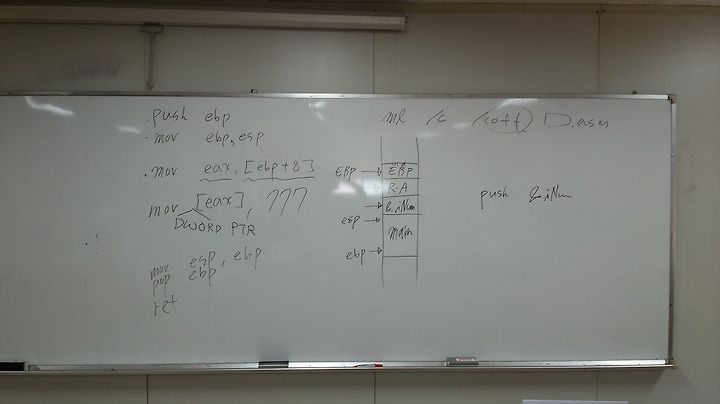 push ebp
mov ebp, esp
mov eax, [ebp+8]
mov [eax], 777
DWORD PTR
mov esp, ebp
pop ebp
ret
ml /c /coff D.asm
EBP → EBP
R.A
&iNum
esp →
main
ebp →
push &iNum